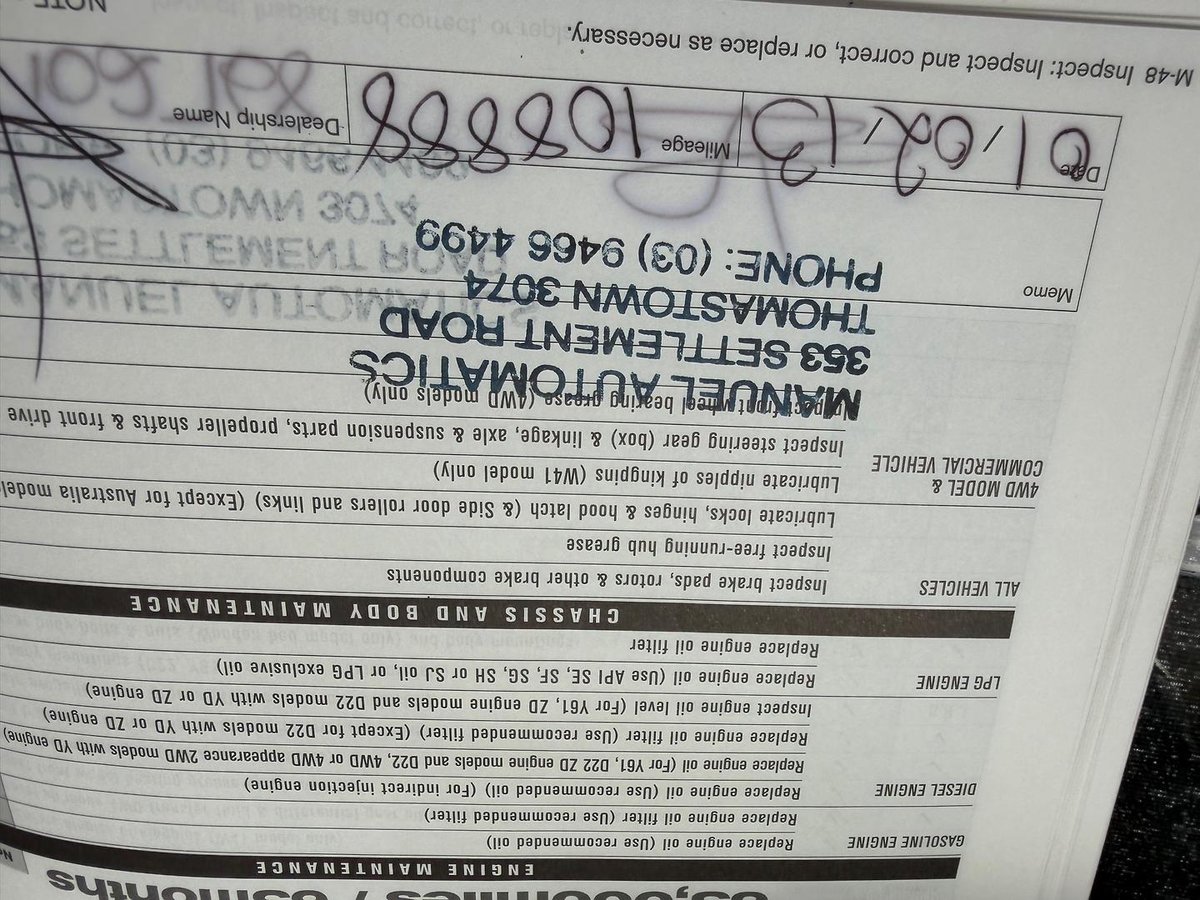 miles / months
ENGINE MAINTENANCE
GASOLINE ENGINE Replace engine oil (Use recommended oil)
Replace engine oil filter (Use recommended filter)
DIESEL ENGINE Replace engine oil (Use recommended oil) (For indirect injection engine)
Replace engine oil (For Y61, D22 ZD engine models and D22, 4WD or 4WD appearance 2WD models with YD engine)
Replace engine oil filter (Use recommended filter) (Except for D22 models with YD or ZD engine)
Inspect engine oil level (For Y61, ZD engine models and D22 models with YD or ZD engine)
LPG ENGINE Replace engine oil (Use API SE, SF, SG, SH or SJ oil, or LPG exclusive oil)
Replace engine oil filter
CHASSIS AND BODY MAINTENANCE
ALL VEHICLES Inspect brake pads, rotors & other brake components
Inspect free-running hub grease
Lubricate locks, hinges & hood latch (& Side door rollers and links) (Except for Australia
4WD MODEL & COMMERCIAL VEHICLE Lubricate nipples of kingpins (W41 model only)
Inspect steering gear (box) & linkage, axle & suspension parts, propeller shafts & front drive
Inspect front wheel bearing grease (4WD models only)
MANUEL AUTOMATICS
353 SETTLEMENT ROAD
THOMASTOWN 3074
PHONE: (03) 9466 4499
Memo
Date 01/02/13 Mileage 108888 Dealership Name
M-48 Inspect: Inspect and correct, or replace as necessary.
NOTE